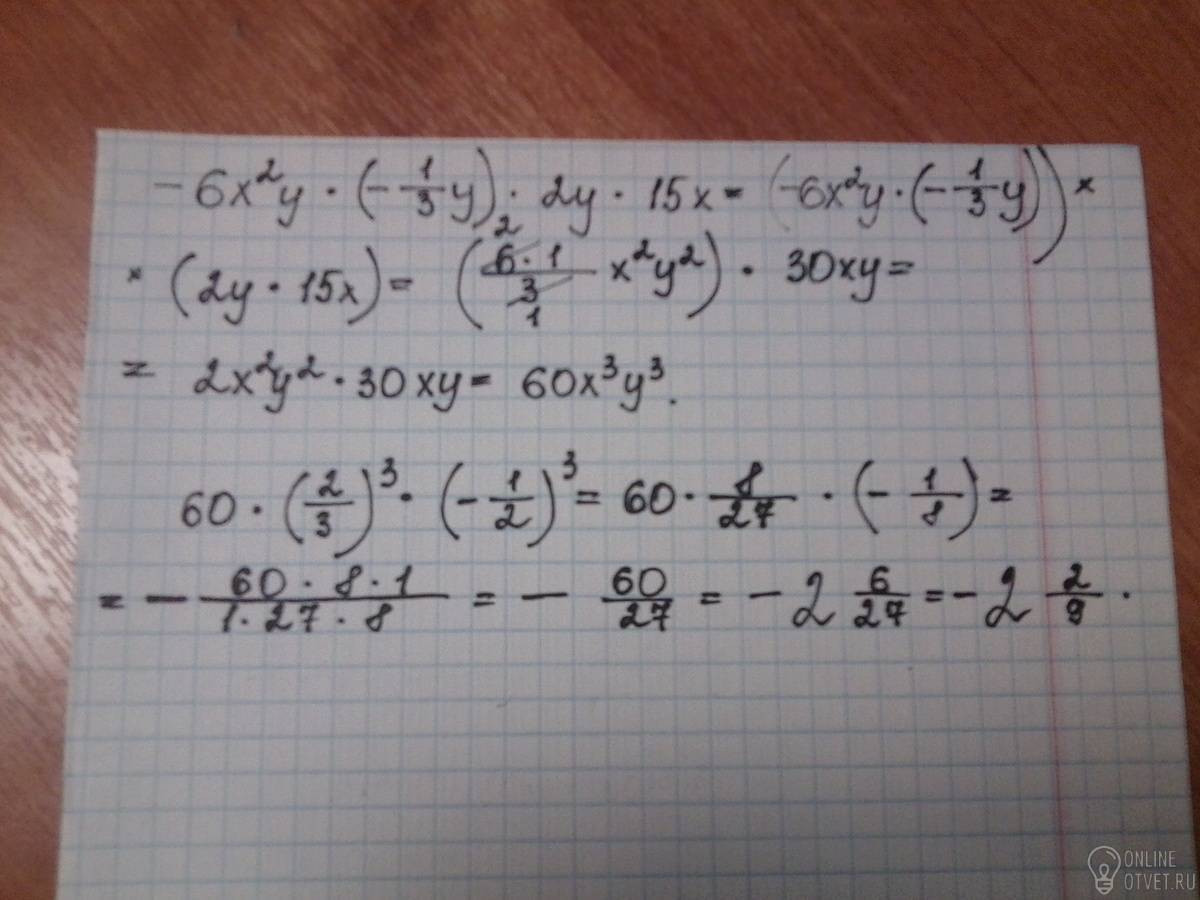 -6x²y · (-1/3 y) · 2y · 15x = (-6x²y · (-1/3 y)) ×
× (2y · 15x) = (6 · 1/3 x²y²) · 30xy =
2
1
= 2x²y² · 30xy = 60x³y³.
60 · (2/3)³ · (-1/2)³ = 60 · 8/27 · (-1/8) =
= - 60 · 8 · 1/1 · 27 · 8 = - 60/27 = -2 6/27 = -2 2/9.
ONLINE
OTVET.RU